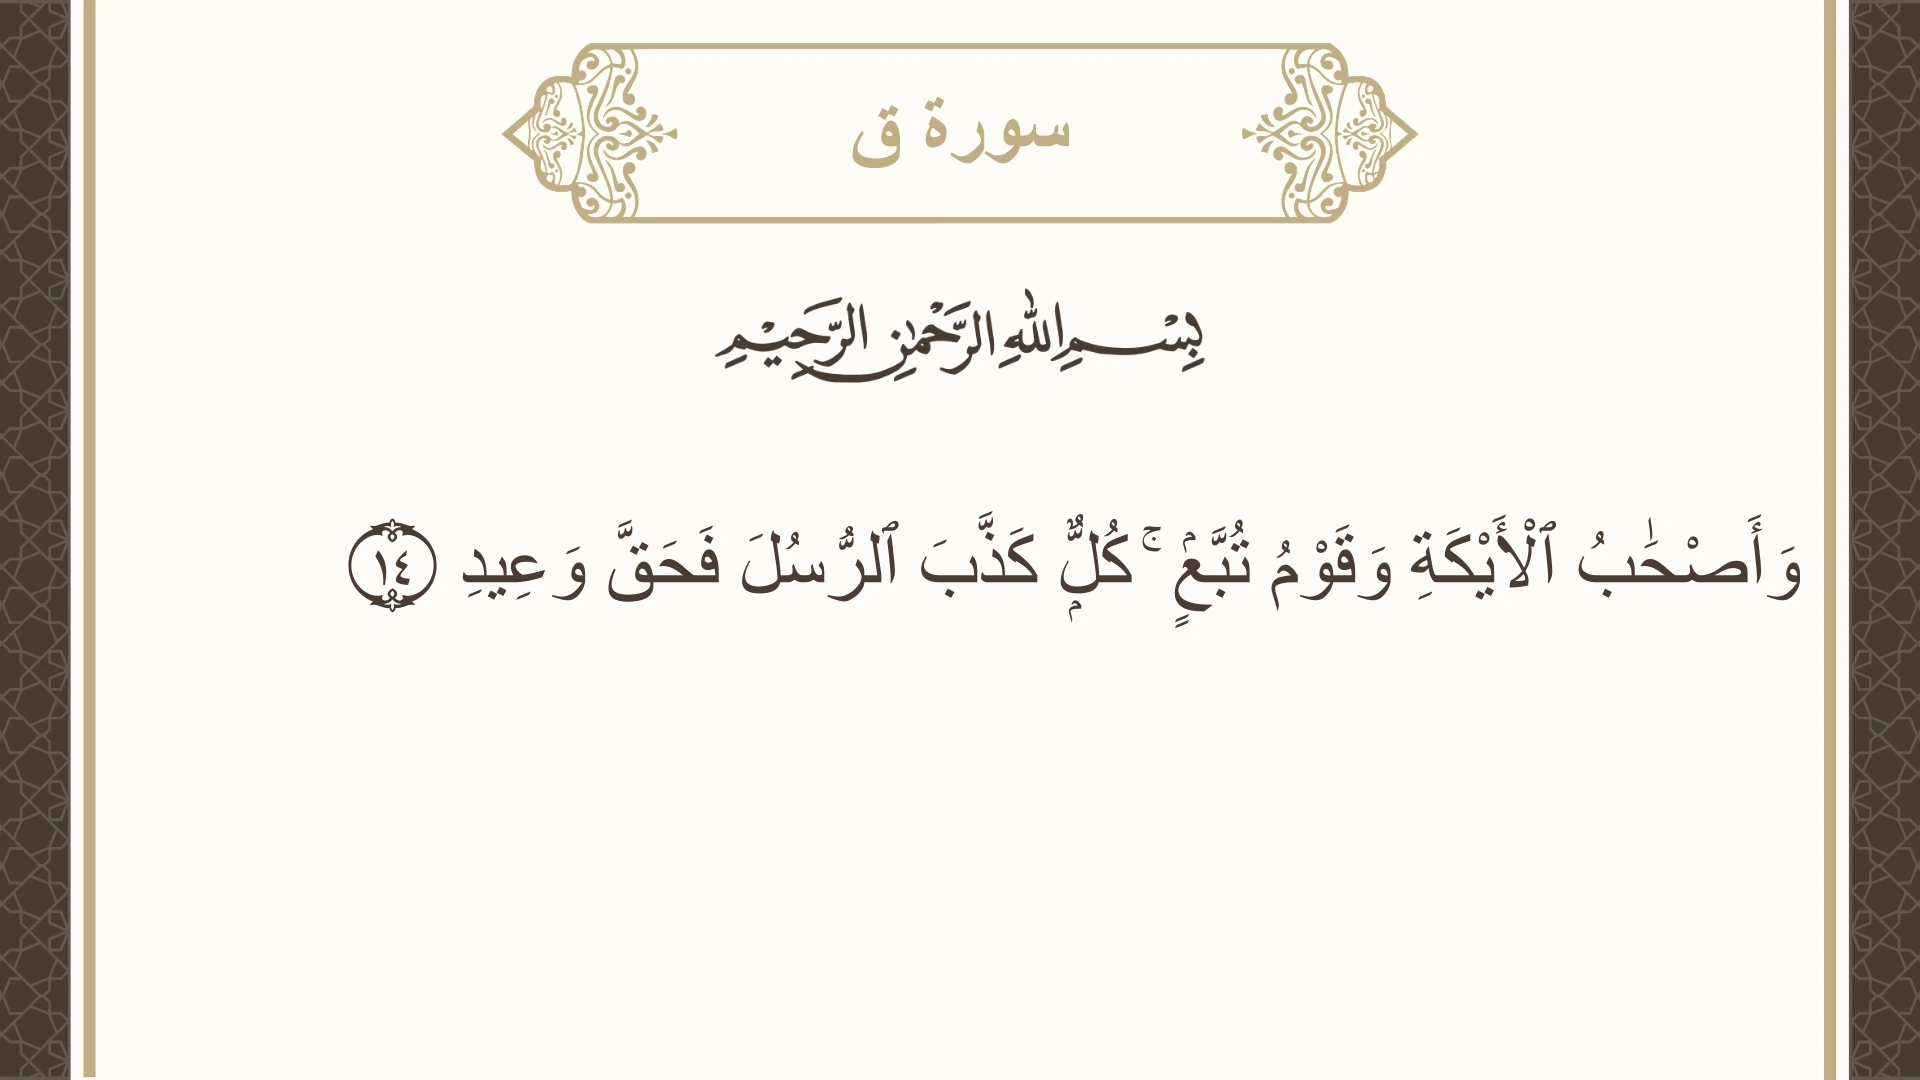 سورة ق
بِسْمِ اللهِ الرَّحْمٰنِ الرَّحِيْمِ
وَأَصْحَٰبُ ٱلْأَيْكَةِ وَقَوْمُ تُبَّعٍۢ ۚ كُلٌّۭ كَذَّبَ ٱلرُّسُلَ فَحَقَّ وَعِيدِ ١٤